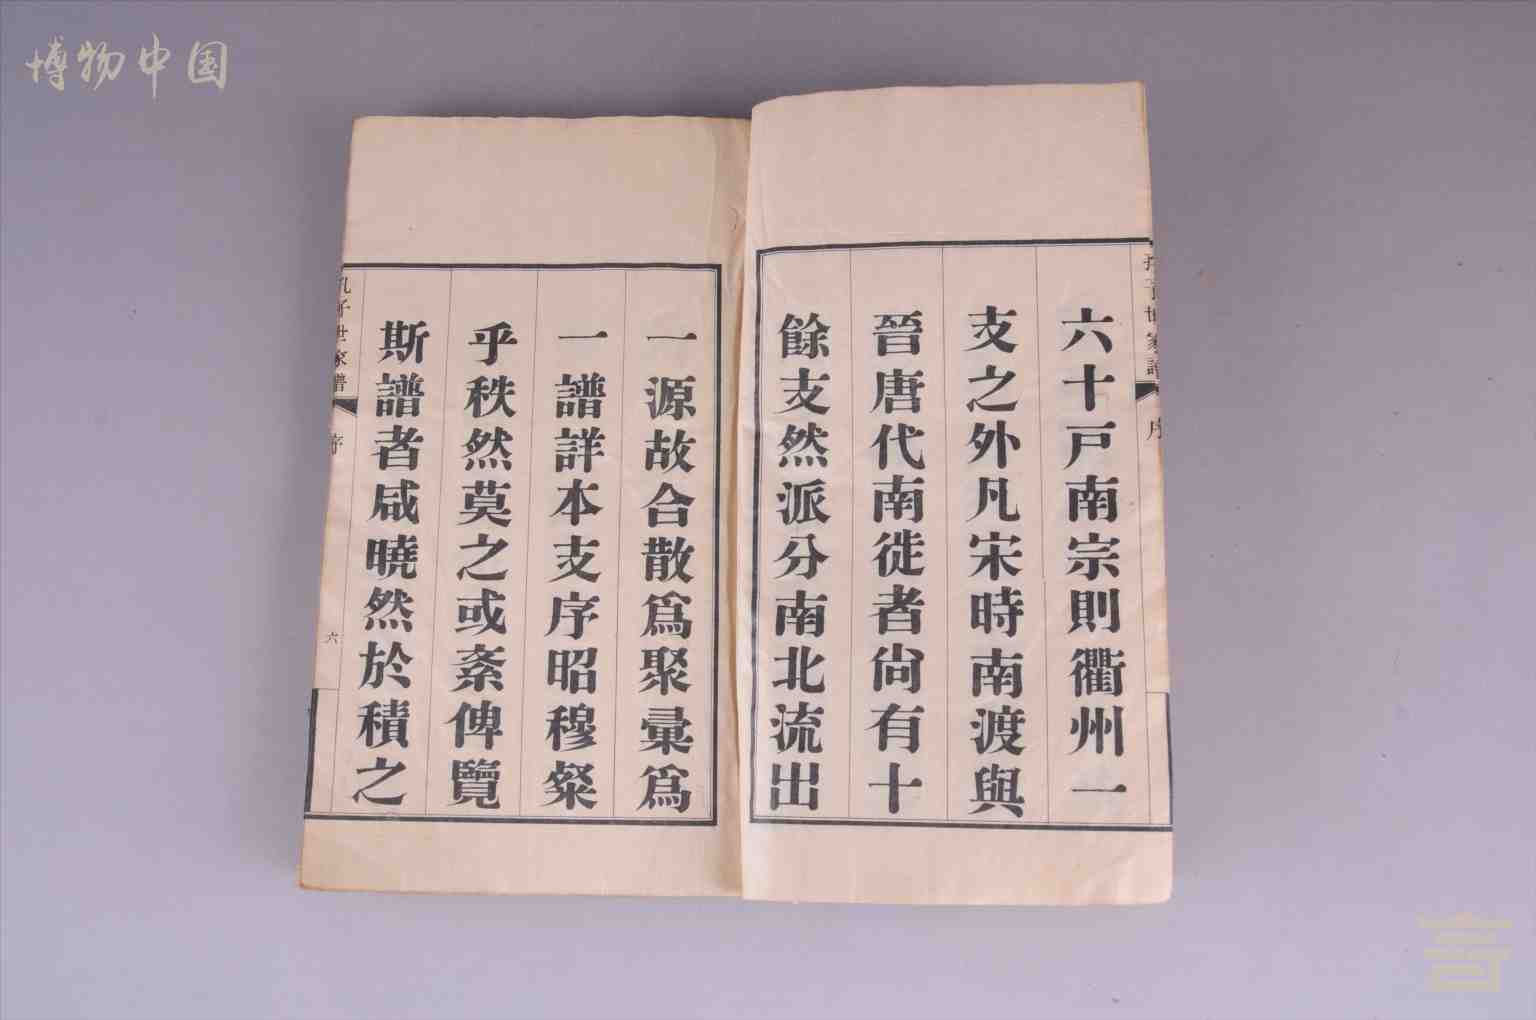 博物中国
六十戸南宗則衢州一
支之外凡宋時南渡與
晉唐代南徙者尙有十
餘支然派分南北流出
孔子世家譜
序
一源故合散爲聚彙爲
一譜詳本支序昭穆粲
乎秩然莫之或紊俾覽
斯譜者咸曉然於積之
孔子世家譜
序
六